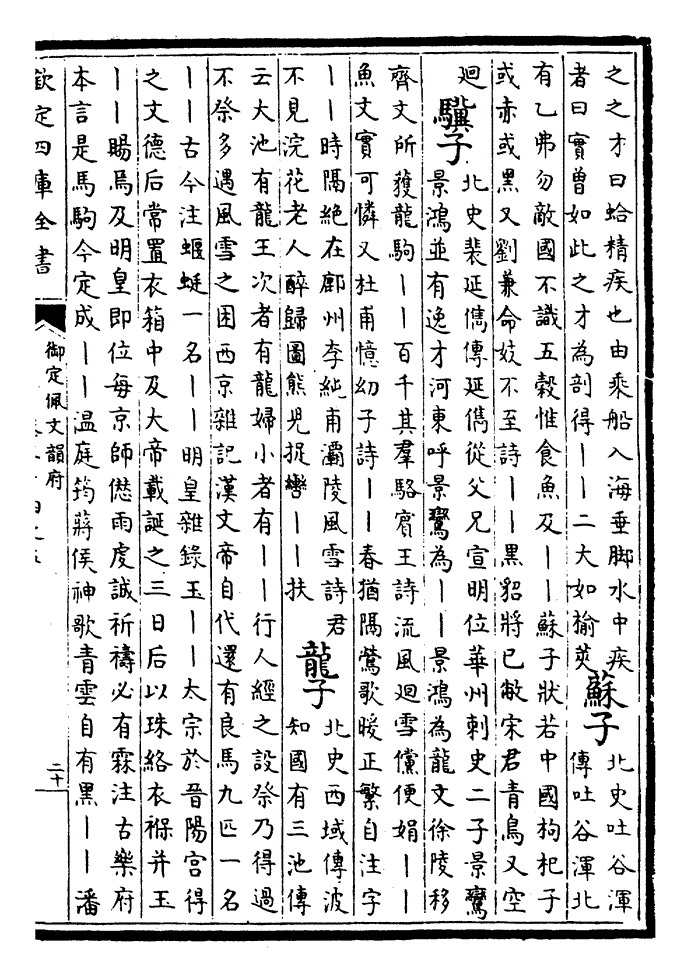 之之才曰蛤精疾也由乘船入海垂脚水中疾
者曰實曾如此之才為剖得丨丨二大如榆莢
蘇子
北史吐谷渾
傳吐谷渾北
有乙弗勿敵國不識五穀惟食魚及丨丨蘇子狀若中國枸杞子
或赤或黑又劉兼命妓不至詩丨丨黑貂將已敝宋君青鳥又空
迴
驥子
北史裴延儁傳延儁從父兄宣明位華州刺史二子景鸞
景鴻並有逸才河東呼景鸞為丨丨景鴻為龍文徐陵移
齊文所獲龍駒丨丨百千其羣駱賓王詩流風迴雪儻便娟丨丨
魚文實可憐又杜甫憶幼子詩丨丨春猶隔鶯歌暖正繁自注字
丨丨時隔絶在鄜州李純甫灞陵風雪詩君
不見浣花老人醉歸圖熊兒捉轡丨丨扶
龍子
北史西域傳波
知國有三池傳
云大池有龍王次者有龍婦小者有丨丨行人經之設祭乃得過
不祭多遇風雪之困西京雜記漢文帝自代還有良馬九匹一名
丨丨古今注蝘蜓一名丨丨明皇雜錄玉丨丨太宗於晉陽宫得
之文德后常置衣箱中及大帝載誕之三日后以珠絡衣褓并玉
丨丨賜焉及明皇即位每京師僁雨虔誠祈禱必有霖注古樂府
本言是馬駒今定成丨丨温庭筠蔣侯神歌青雲自有黑丨丨潘
欽定四庫全書
御定佩文韻府
二十